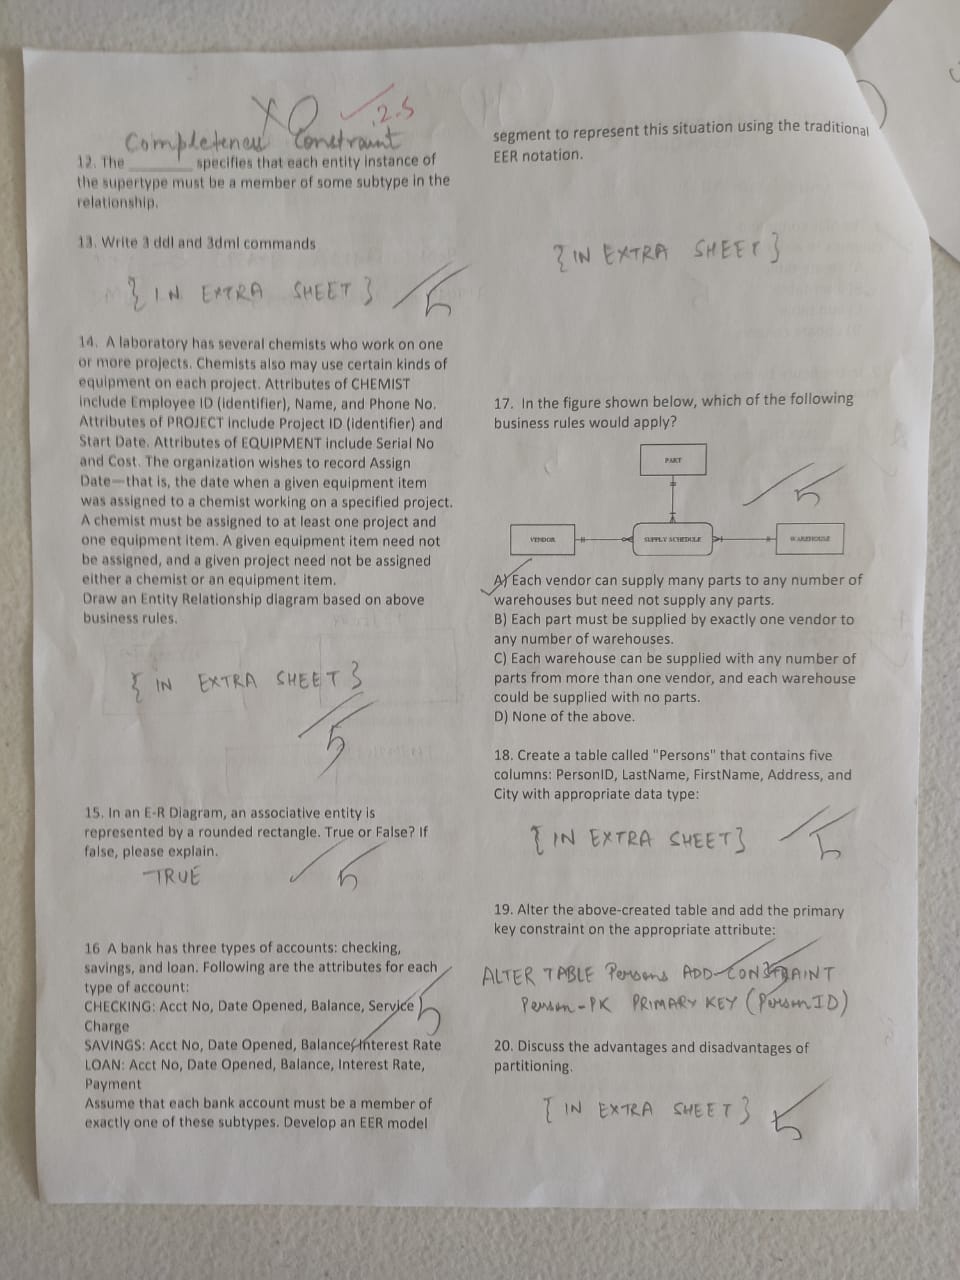 X0 2.5
Completeness Constraint
12. The ______ specifies that each entity instance of
the supertype must be a member of some subtype in the
relationship.
13. Write 3 ddl and 3dml commands
{ IN EXTRA SHEET } 5
14. A laboratory has several chemists who work on one
or more projects. Chemists also may use certain kinds of
equipment on each project. Attributes of CHEMIST
include Employee ID (identifier), Name, and Phone No.
Attributes of PROJECT include Project ID (identifier) and
Start Date. Attributes of EQUIPMENT include Serial No
and Cost. The organization wishes to record Assign
Date—that is, the date when a given equipment item
was assigned to a chemist working on a specified project.
A chemist must be assigned to at least one project and
one equipment item. A given equipment item need not
be assigned, and a given project need not be assigned
either a chemist or an equipment item.
Draw an Entity Relationship diagram based on above
business rules.
{ IN EXTRA SHEET }
5
15. In an E-R Diagram, an associative entity is
represented by a rounded rectangle. True or False? If
false, please explain.
TRUE 5
16 A bank has three types of accounts: checking,
savings, and loan. Following are the attributes for each
type of account:
CHECKING: Acct No, Date Opened, Balance, Service 5
Charge
SAVINGS: Acct No, Date Opened, Balance, Interest Rate
LOAN: Acct No, Date Opened, Balance, Interest Rate,
Payment
Assume that each bank account must be a member of
exactly one of these subtypes. Develop an EER model
segment to represent this situation using the traditional
EER notation.
{ IN EXTRA SHEET }
17. In the figure shown below, which of the following
business rules would apply?
PART
5
VENDOR SUPPLY SCHEDULE WAREHOUSE
A) Each vendor can supply many parts to any number of
warehouses but need not supply any parts.
B) Each part must be supplied by exactly one vendor to
any number of warehouses.
C) Each warehouse can be supplied with any number of
parts from more than one vendor, and each warehouse
could be supplied with no parts.
D) None of the above.
18. Create a table called "Persons" that contains five
columns: PersonID, LastName, FirstName, Address, and
City with appropriate data type:
{ IN EXTRA SHEET } 5
19. Alter the above-created table and add the primary
key constraint on the appropriate attribute:
ALTER TABLE Persons ADD CONSTRAINT
Person-PK PRIMARY KEY (PersonID)
20. Discuss the advantages and disadvantages of
partitioning.
{ IN EXTRA SHEET } 5